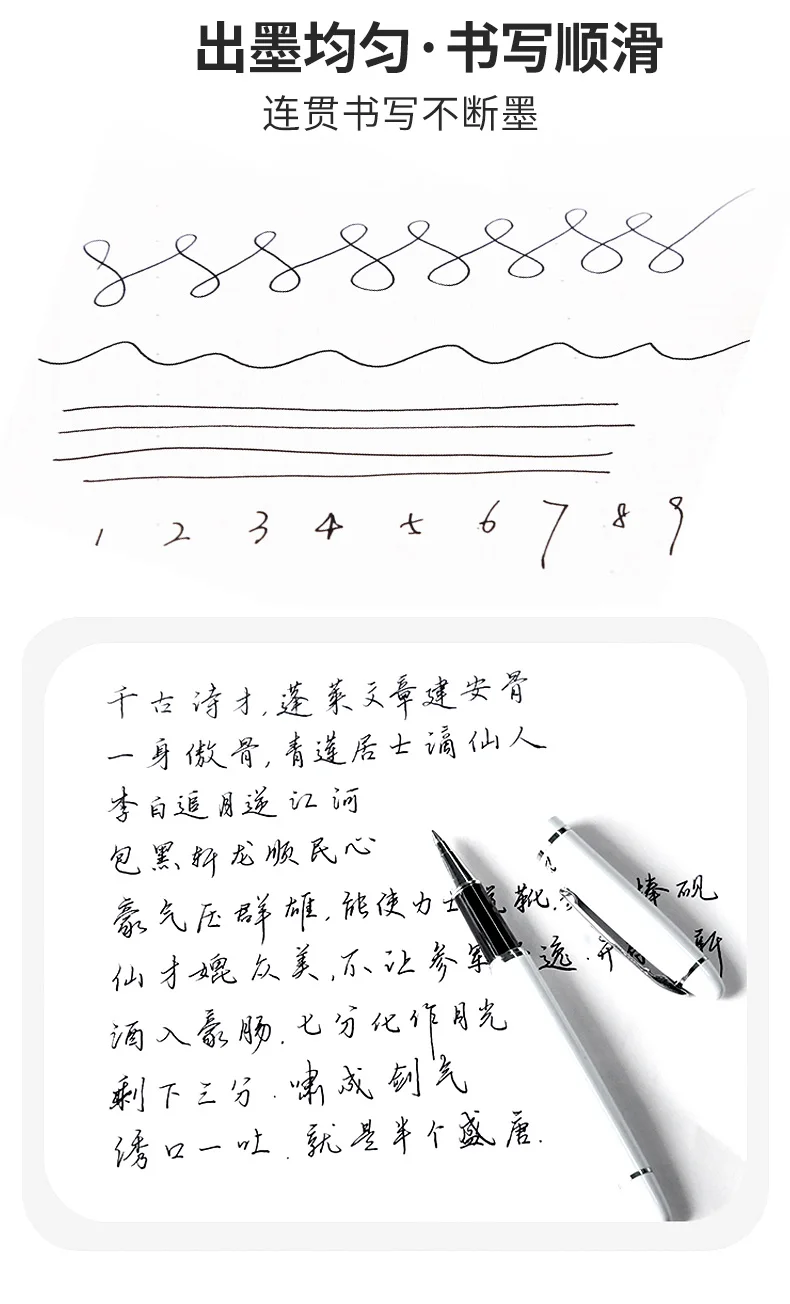 出墨均匀·书写顺滑
连贯书写不断墨
1 2 3 4 5 6 7 8 9
千古诗才,蓬莱文章建安骨
一身傲骨,青莲居士谪仙人
李白追月逆江河
包黑轩龙顺民心
豪气压群雄,能使力士 靴, 捧砚
仙才媲众美,不让参军 逸. 开 轩
酒入豪肠.七分化作月光
剩下三分.啸成剑气
绣口一吐.就是半个盛唐.